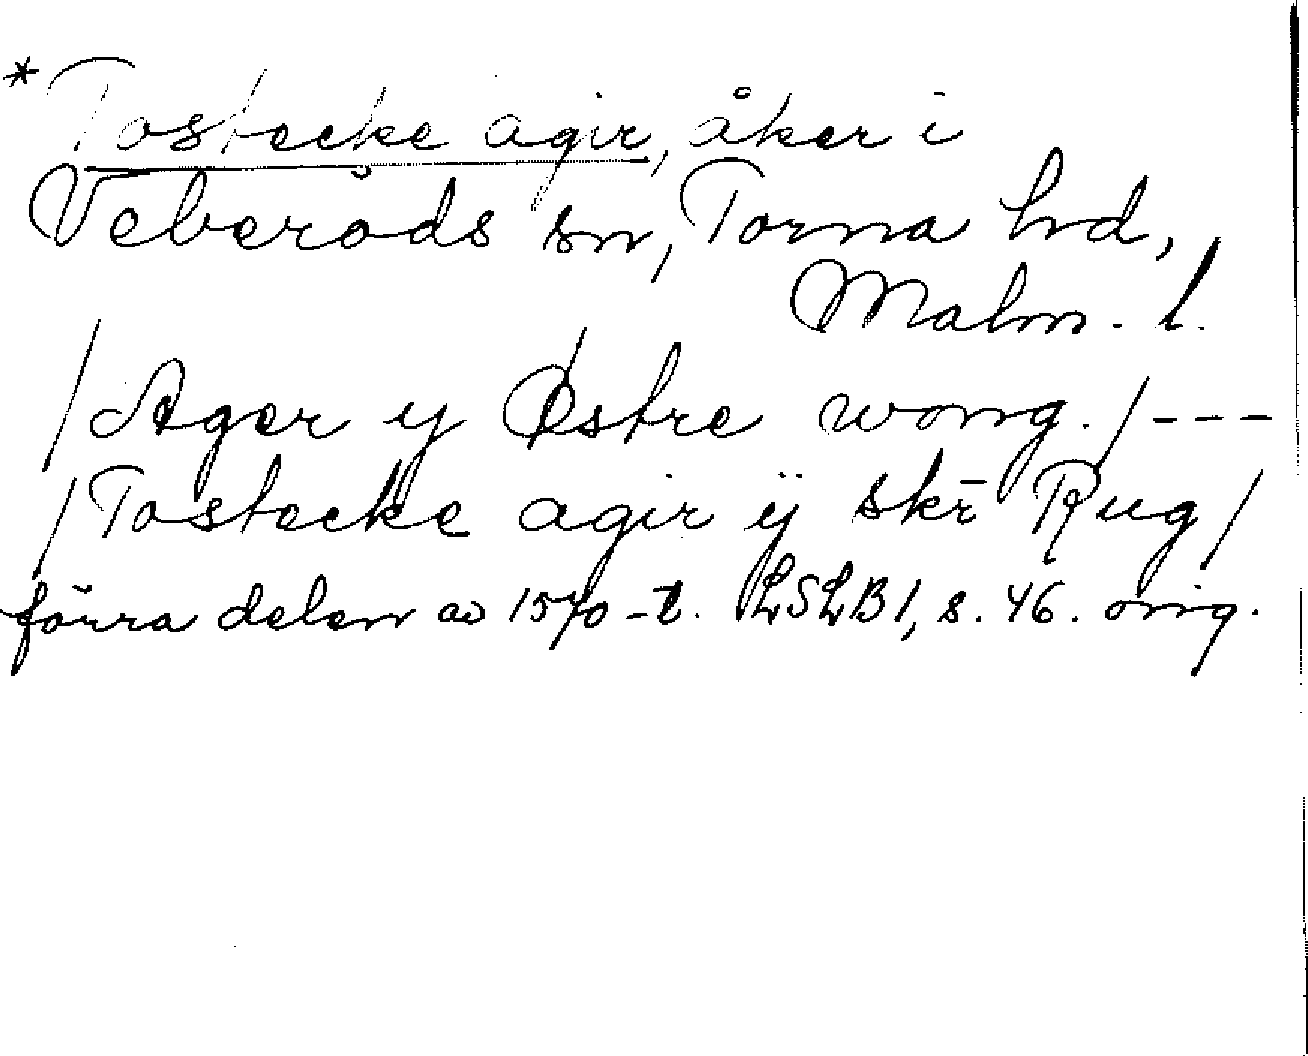 * Tostecke agir, åker i
Veberöds sn, Torna hd,
Malm. l.
/Ager y Østre wong./---
/Tostecke agir ÿ skr̄ Rug/
förra delen av 1570-t. LSLB1, s. 46. orig.